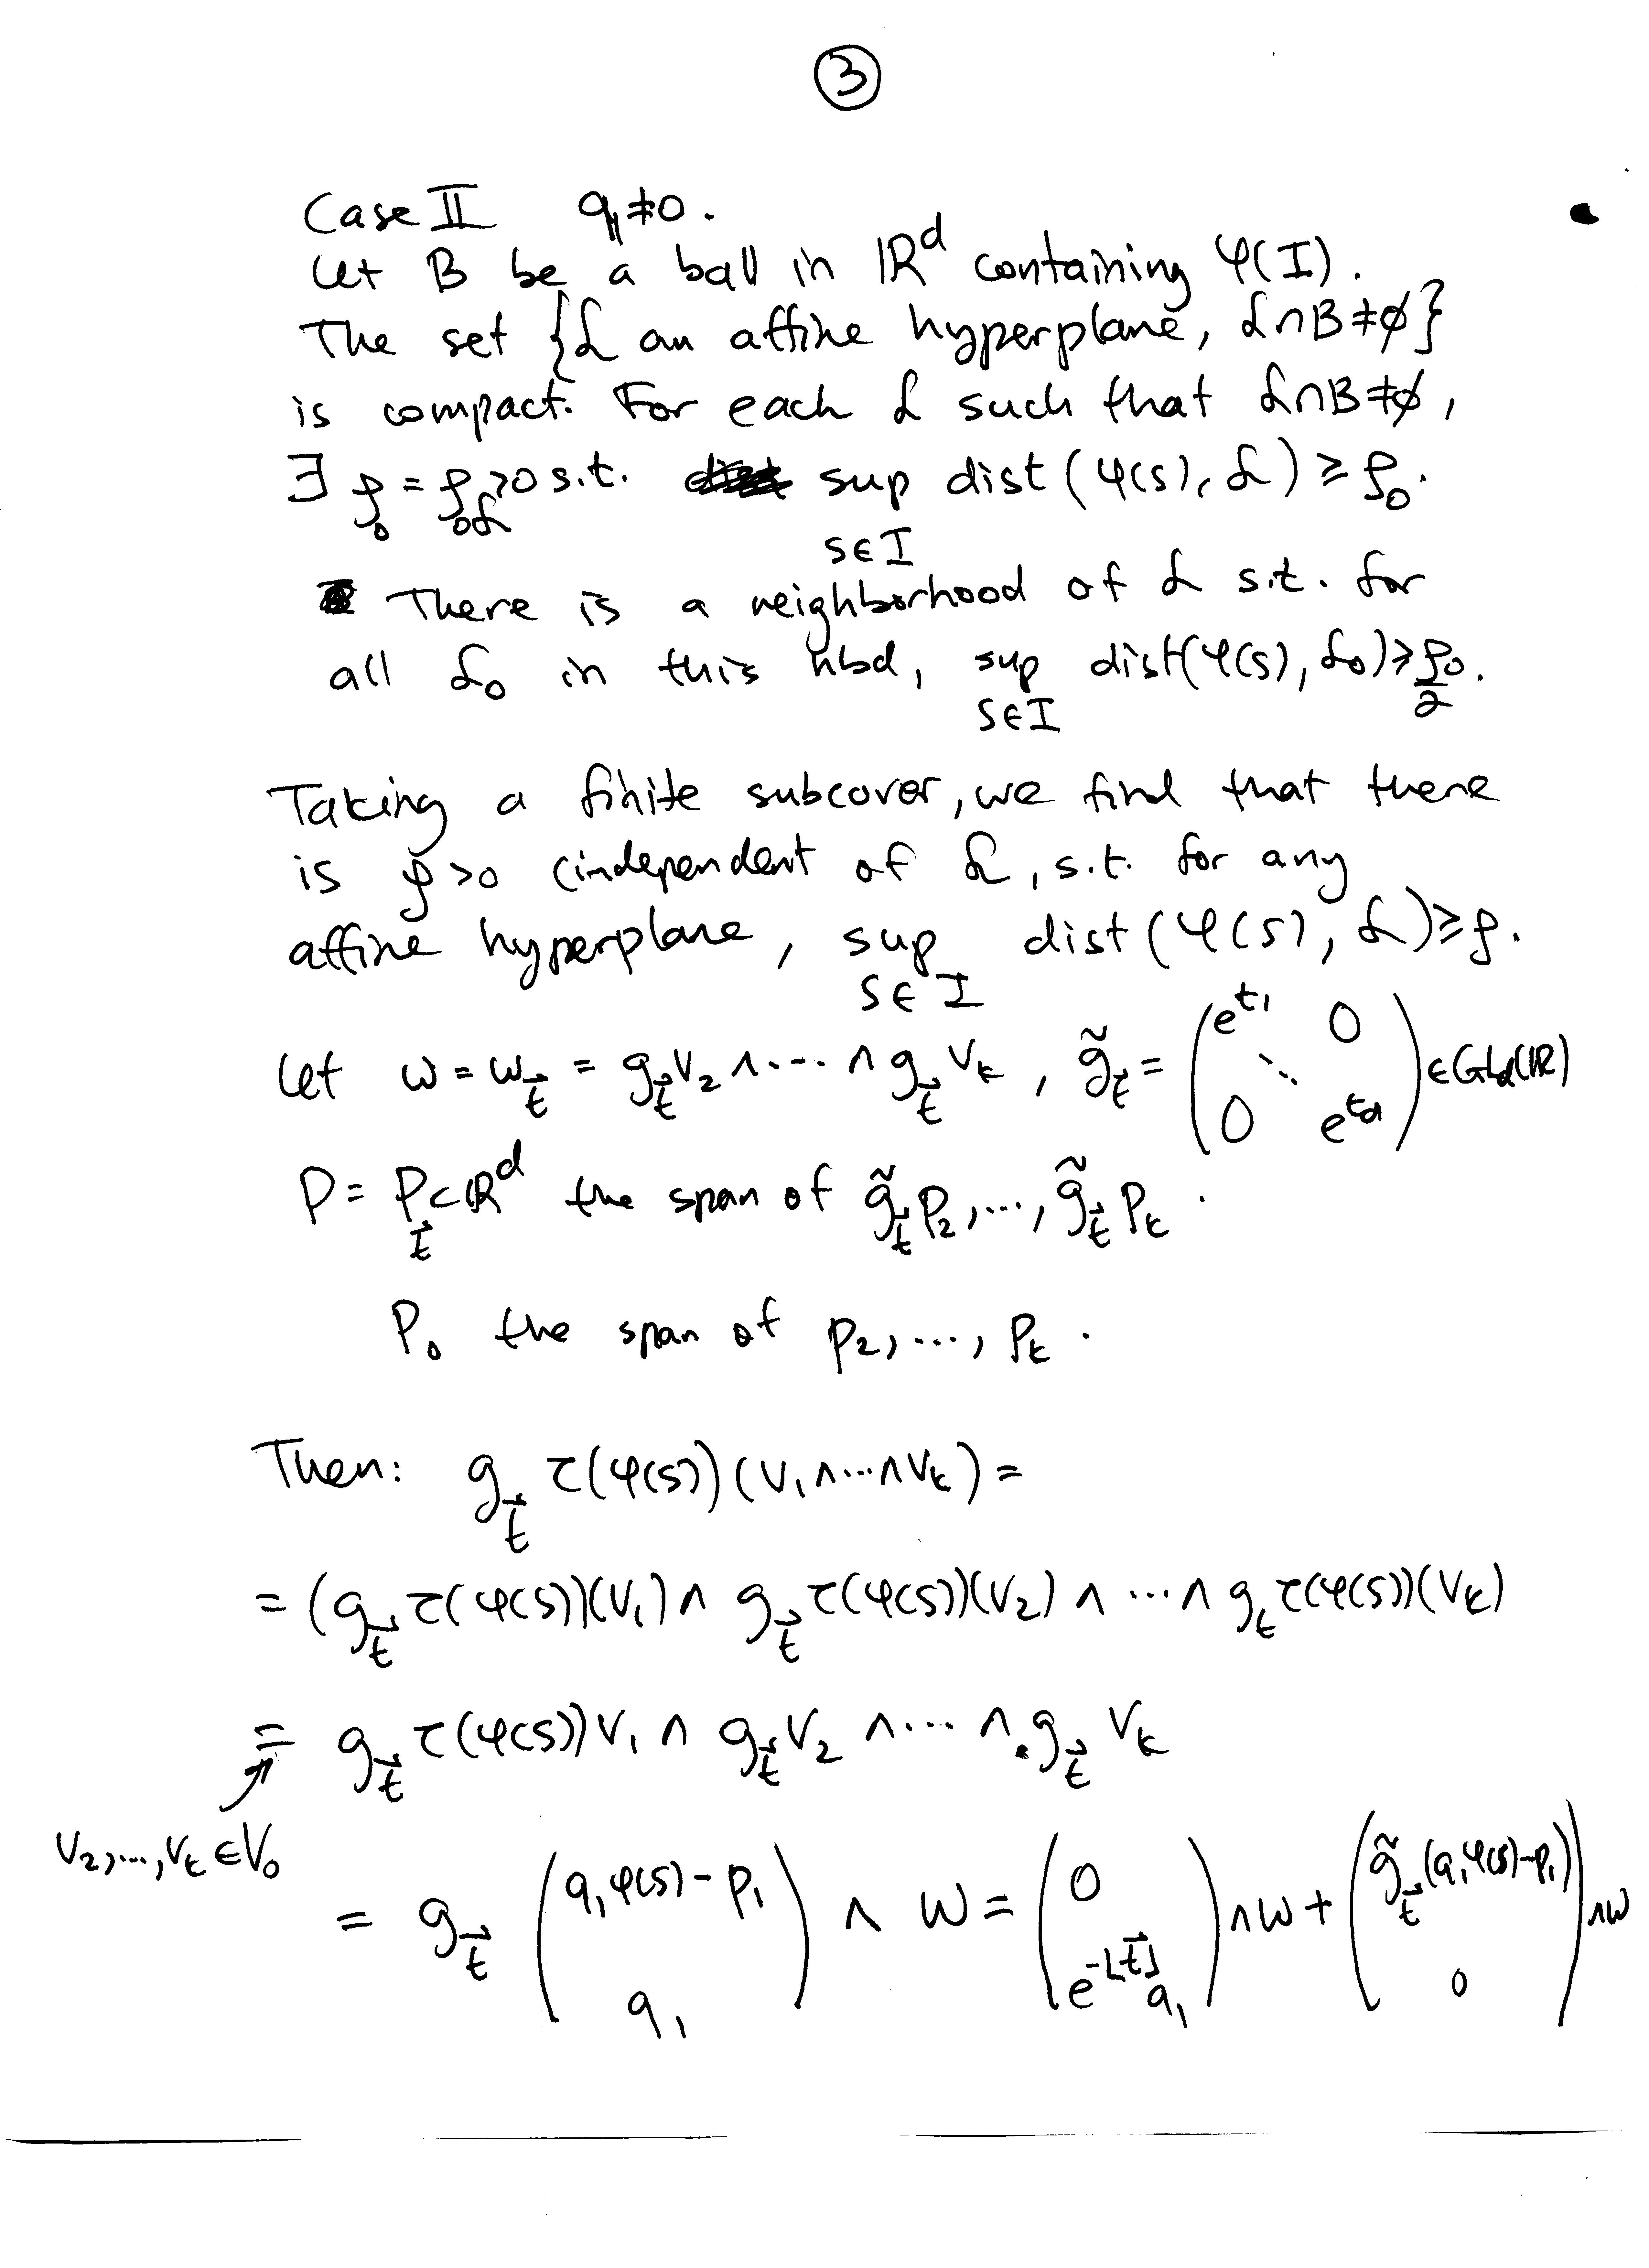 ③
Case II q₁≠0.
Let B be a ball in ℝᵈ containing φ(I).
The set {ℒ an affine hyperplane, ℒ∩B≠∅}
is compact. For each ℒ such that ℒ∩B≠∅,
∃ ρ₀ = ρ₀ℒ >0 s.t. sup dist(φ(s), ℒ) ≥ ρ₀.
s∈I
There is a neighborhood of ℒ s.t. for
all ℒ₀ in this nbd, sup dist(φ(s), ℒ₀) ≥ ρ₀/2.
s∈I
Taking a finite subcover, we find that there
is ρ>0 (independent of ℒ, s.t. for any
affine hyperplane, sup dist(φ(s), ℒ) ≥ ρ.
s∈I
Let w = w_t⃗ = g_t⃗ v₂ ∧ ⋯ ∧ g_t⃗ v_k , g̃_t⃗ = (e^{t₁} 0 ⋱ 0 e^{t_d}) ∈ GL_d(ℝ)
P = P_t⃗ ⊂ ℝᵈ the span of g̃_t⃗ p₂, ..., g̃_t⃗ p_k .
P₀ the span of p₂, ..., p_k .
Then: g_t⃗ τ(φ(s))(v₁ ∧ ⋯ ∧ v_k) =
= (g_t⃗ τ(φ(s))(v₁) ∧ g_t⃗ τ(φ(s))(v₂) ∧ ⋯ ∧ g_t τ(φ(s))(v_k)
= g_t⃗ τ(φ(s)) v₁ ∧ g_t⃗ v₂ ∧ ⋯ ∧ g_t⃗ v_k
v₂, ..., v_k ∈ V₀
= g_t⃗ (q₁φ(s) - p₁ q₁) ∧ w = (0 e^{-⌊t⃗⌋} q₁) ∧ w + (g̃_t⃗ (q₁φ(s) - p₁) 0) ∧ w